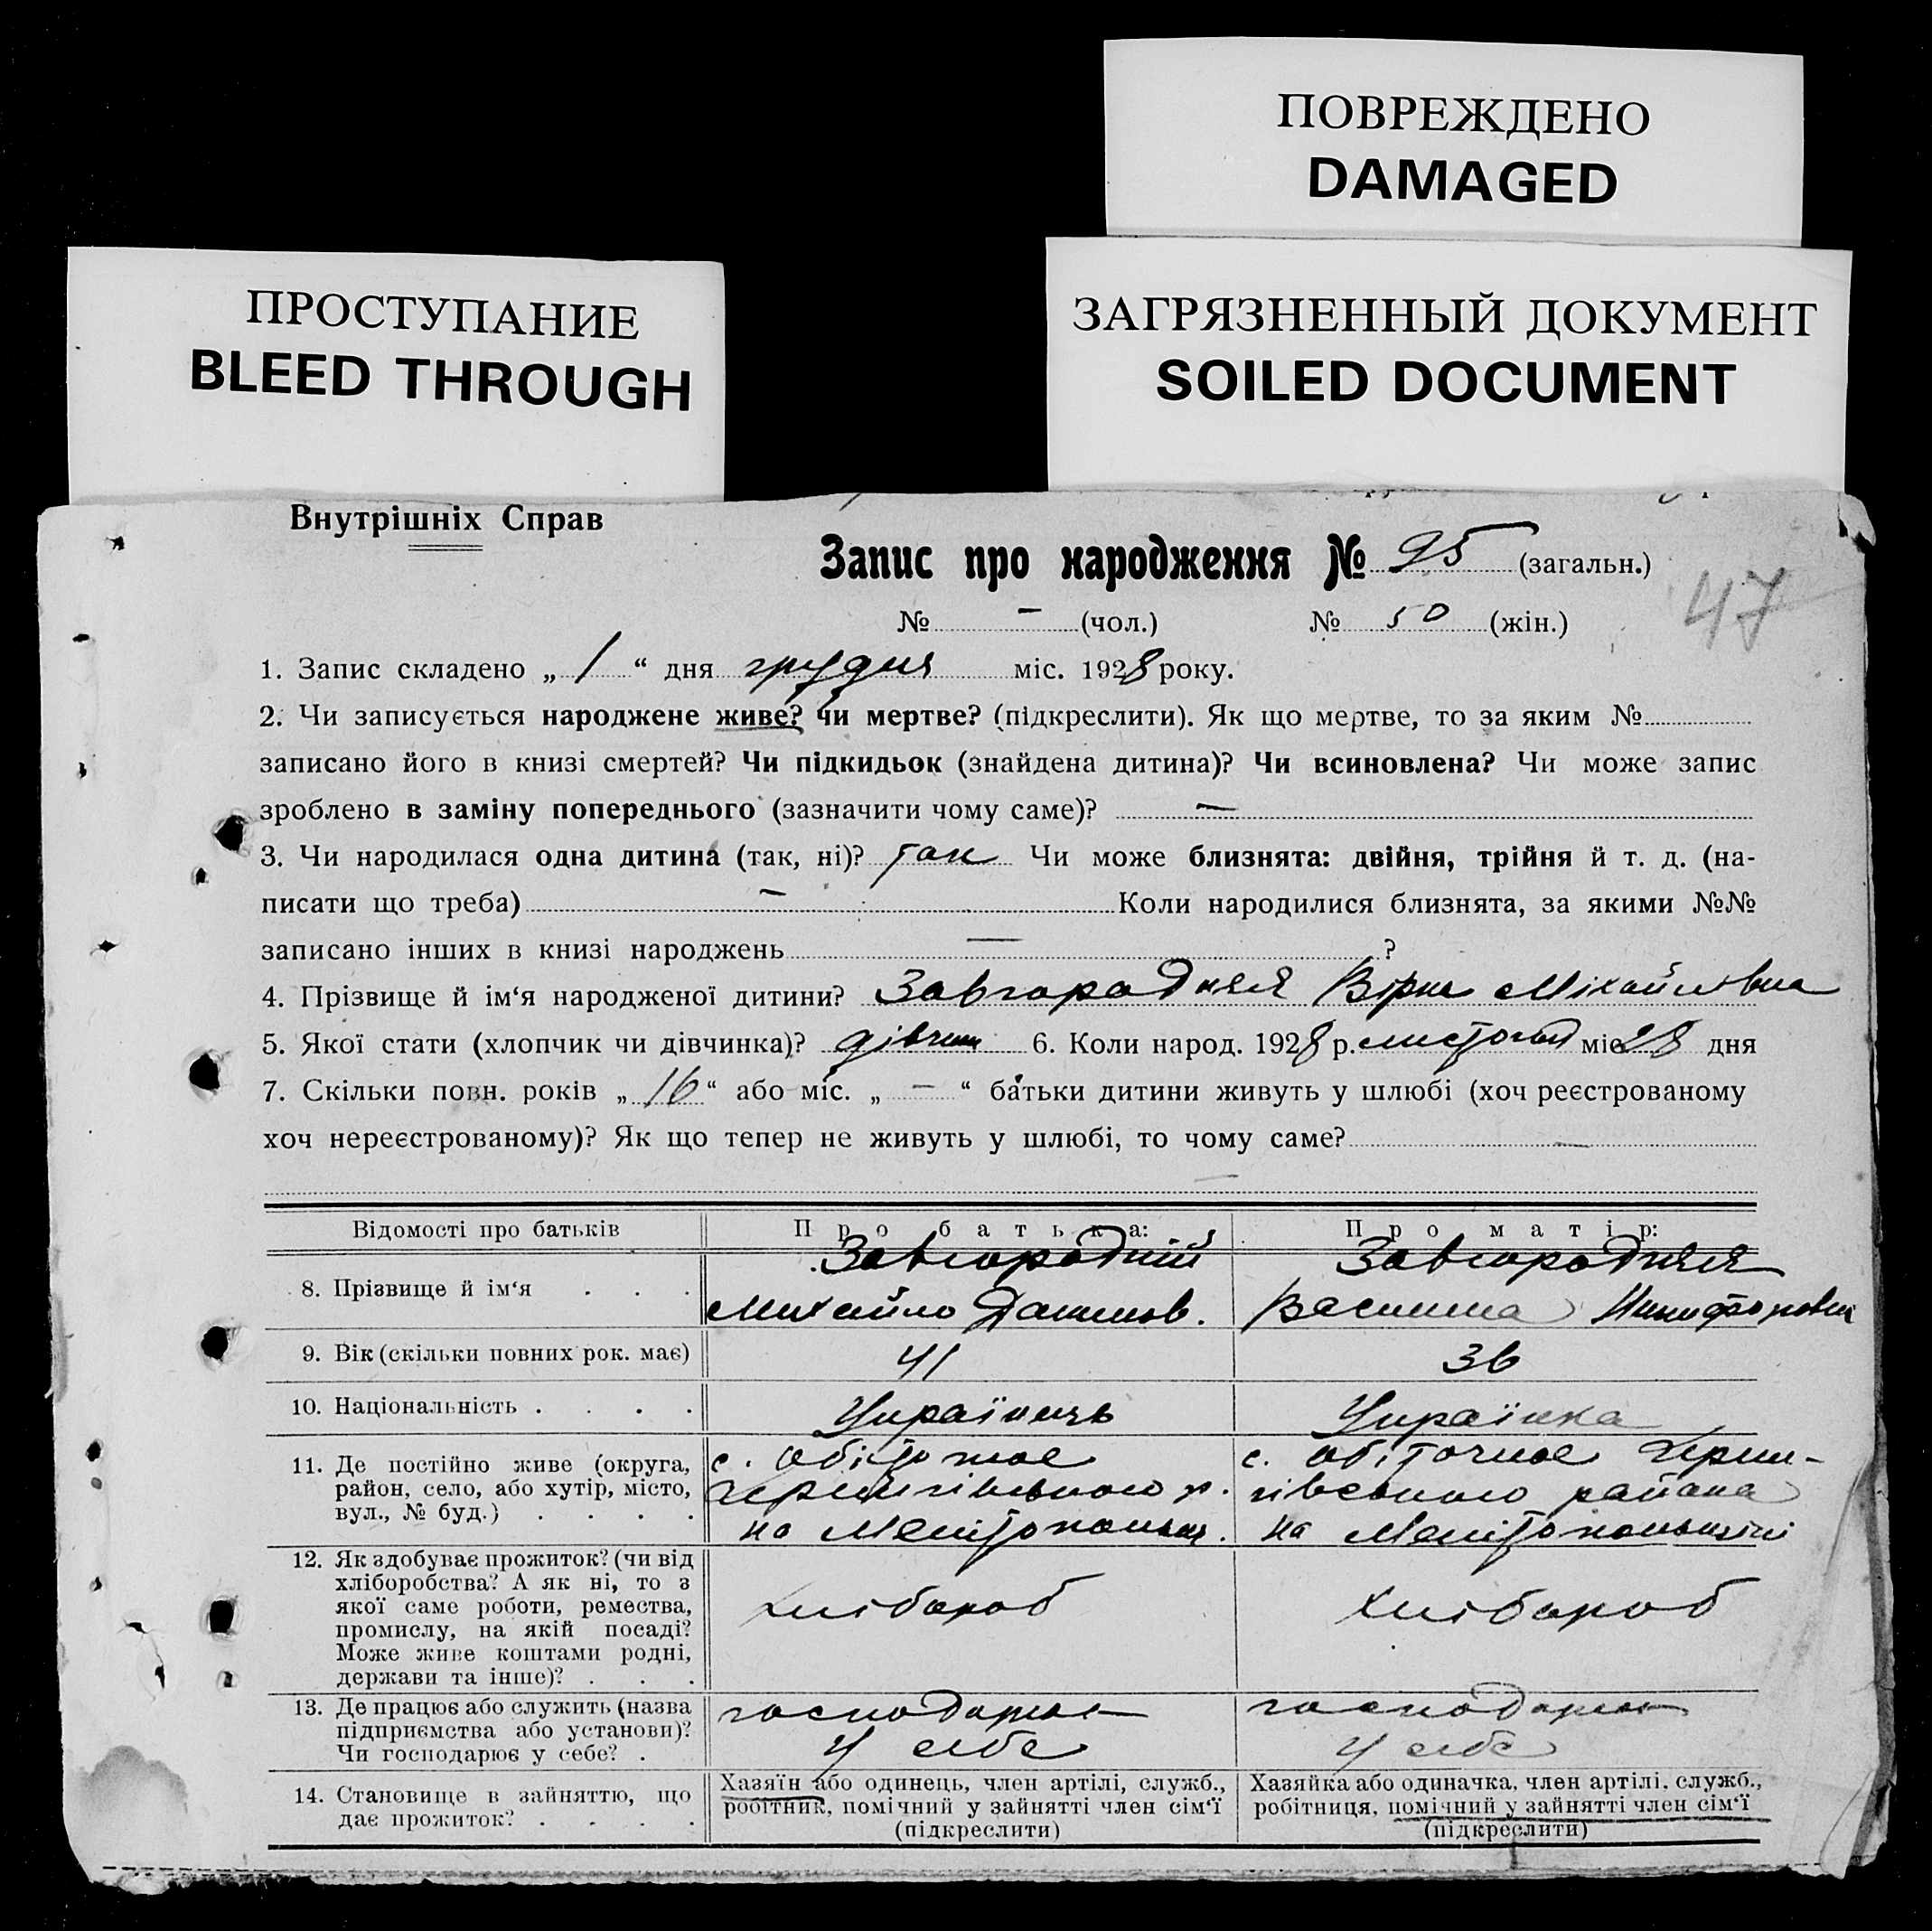 ПОВРЕЖДЕНО
DAMAGED
ПРОСТУПАНИЕ
BLEED THROUGH
ЗАГРЯЗНЕННЫЙ ДОКУМЕНТ
SOILED DOCUMENT
Внутрішніх Справ
Запис про народження № 95 (загальн.)
47
№ — (чол.) № 50 (жін.)
1. Запис складено „ 1 “ дня грудня міс. 1928 року.
2. Чи записується народжене живе? чи мертве? (підкреслити). Як що мертве, то за яким №
записано його в книзі смертей? Чи підкидьок (знайдена дитина)? Чи всиновлена? Чи може запис
зроблено в заміну попереднього (зазначити чому саме)? —
3. Чи народилася одна дитина (так, ні)? так Чи може близнята: двійня, трійня й т. д. (на-
писати що треба) — Коли народилися близнята, за якими №№
записано інших в книзі народжень — ?
4. Прізвище й ім‘я народженої дитини? Завгородняя Віра Міхайловна
5. Якої стати (хлопчик чи дівчинка)? дівчин 6. Коли народ. 1928 р. листопад міс 28 дня
7. Скільки повн. років „ 16 “ або міс. „ — “ батьки дитини живуть у шлюбі (хоч реєстрованому
хоч нереєстрованому)? Як що тепер не живуть у шлюбі, то чому саме? —
—
Відомості про батьків Про батька: Про матір:
8. Прізвище й ім‘я . . . Завгородній Завгородняя
Михайло Данилов. Василина Никифоровна
9. Вік (скільки повних рок. має) 41 36
10. Національність . . . . Українець Українка
11. Де постійно живе (округа, район, село, або хутір, місто, вул., № буд.) . . . .
с. Обіточное
Чернигівського р.
на Мелітопольщ.
с. Обіточное Черни-
гівського района
на Мелітопольщіні
12. Як здобуває прожиток? (чи від
хліборобства? А як ні, то з
якої саме роботи, ремества,
промислу, на якій посаді?
Може живе коштами родні,
держави та інше)? . . .
хлібороб хлібороб
13. Де працює або служить (назва
підприємства або установи)?
Чи господарює у себе? .
господарює
у себе
господарює
у себе
14. Становище в зайняттю, що
дає прожиток? . . . .
Хазяїн або одинець, член артілі, служб.,
робітник, помічний у зайнятті член сім‘ї
(підкреслити)
Хазяйка або одиначка, член артілі, служб.,
робітниця, помічний у зайнятті член сім‘ї
(підкреслити)